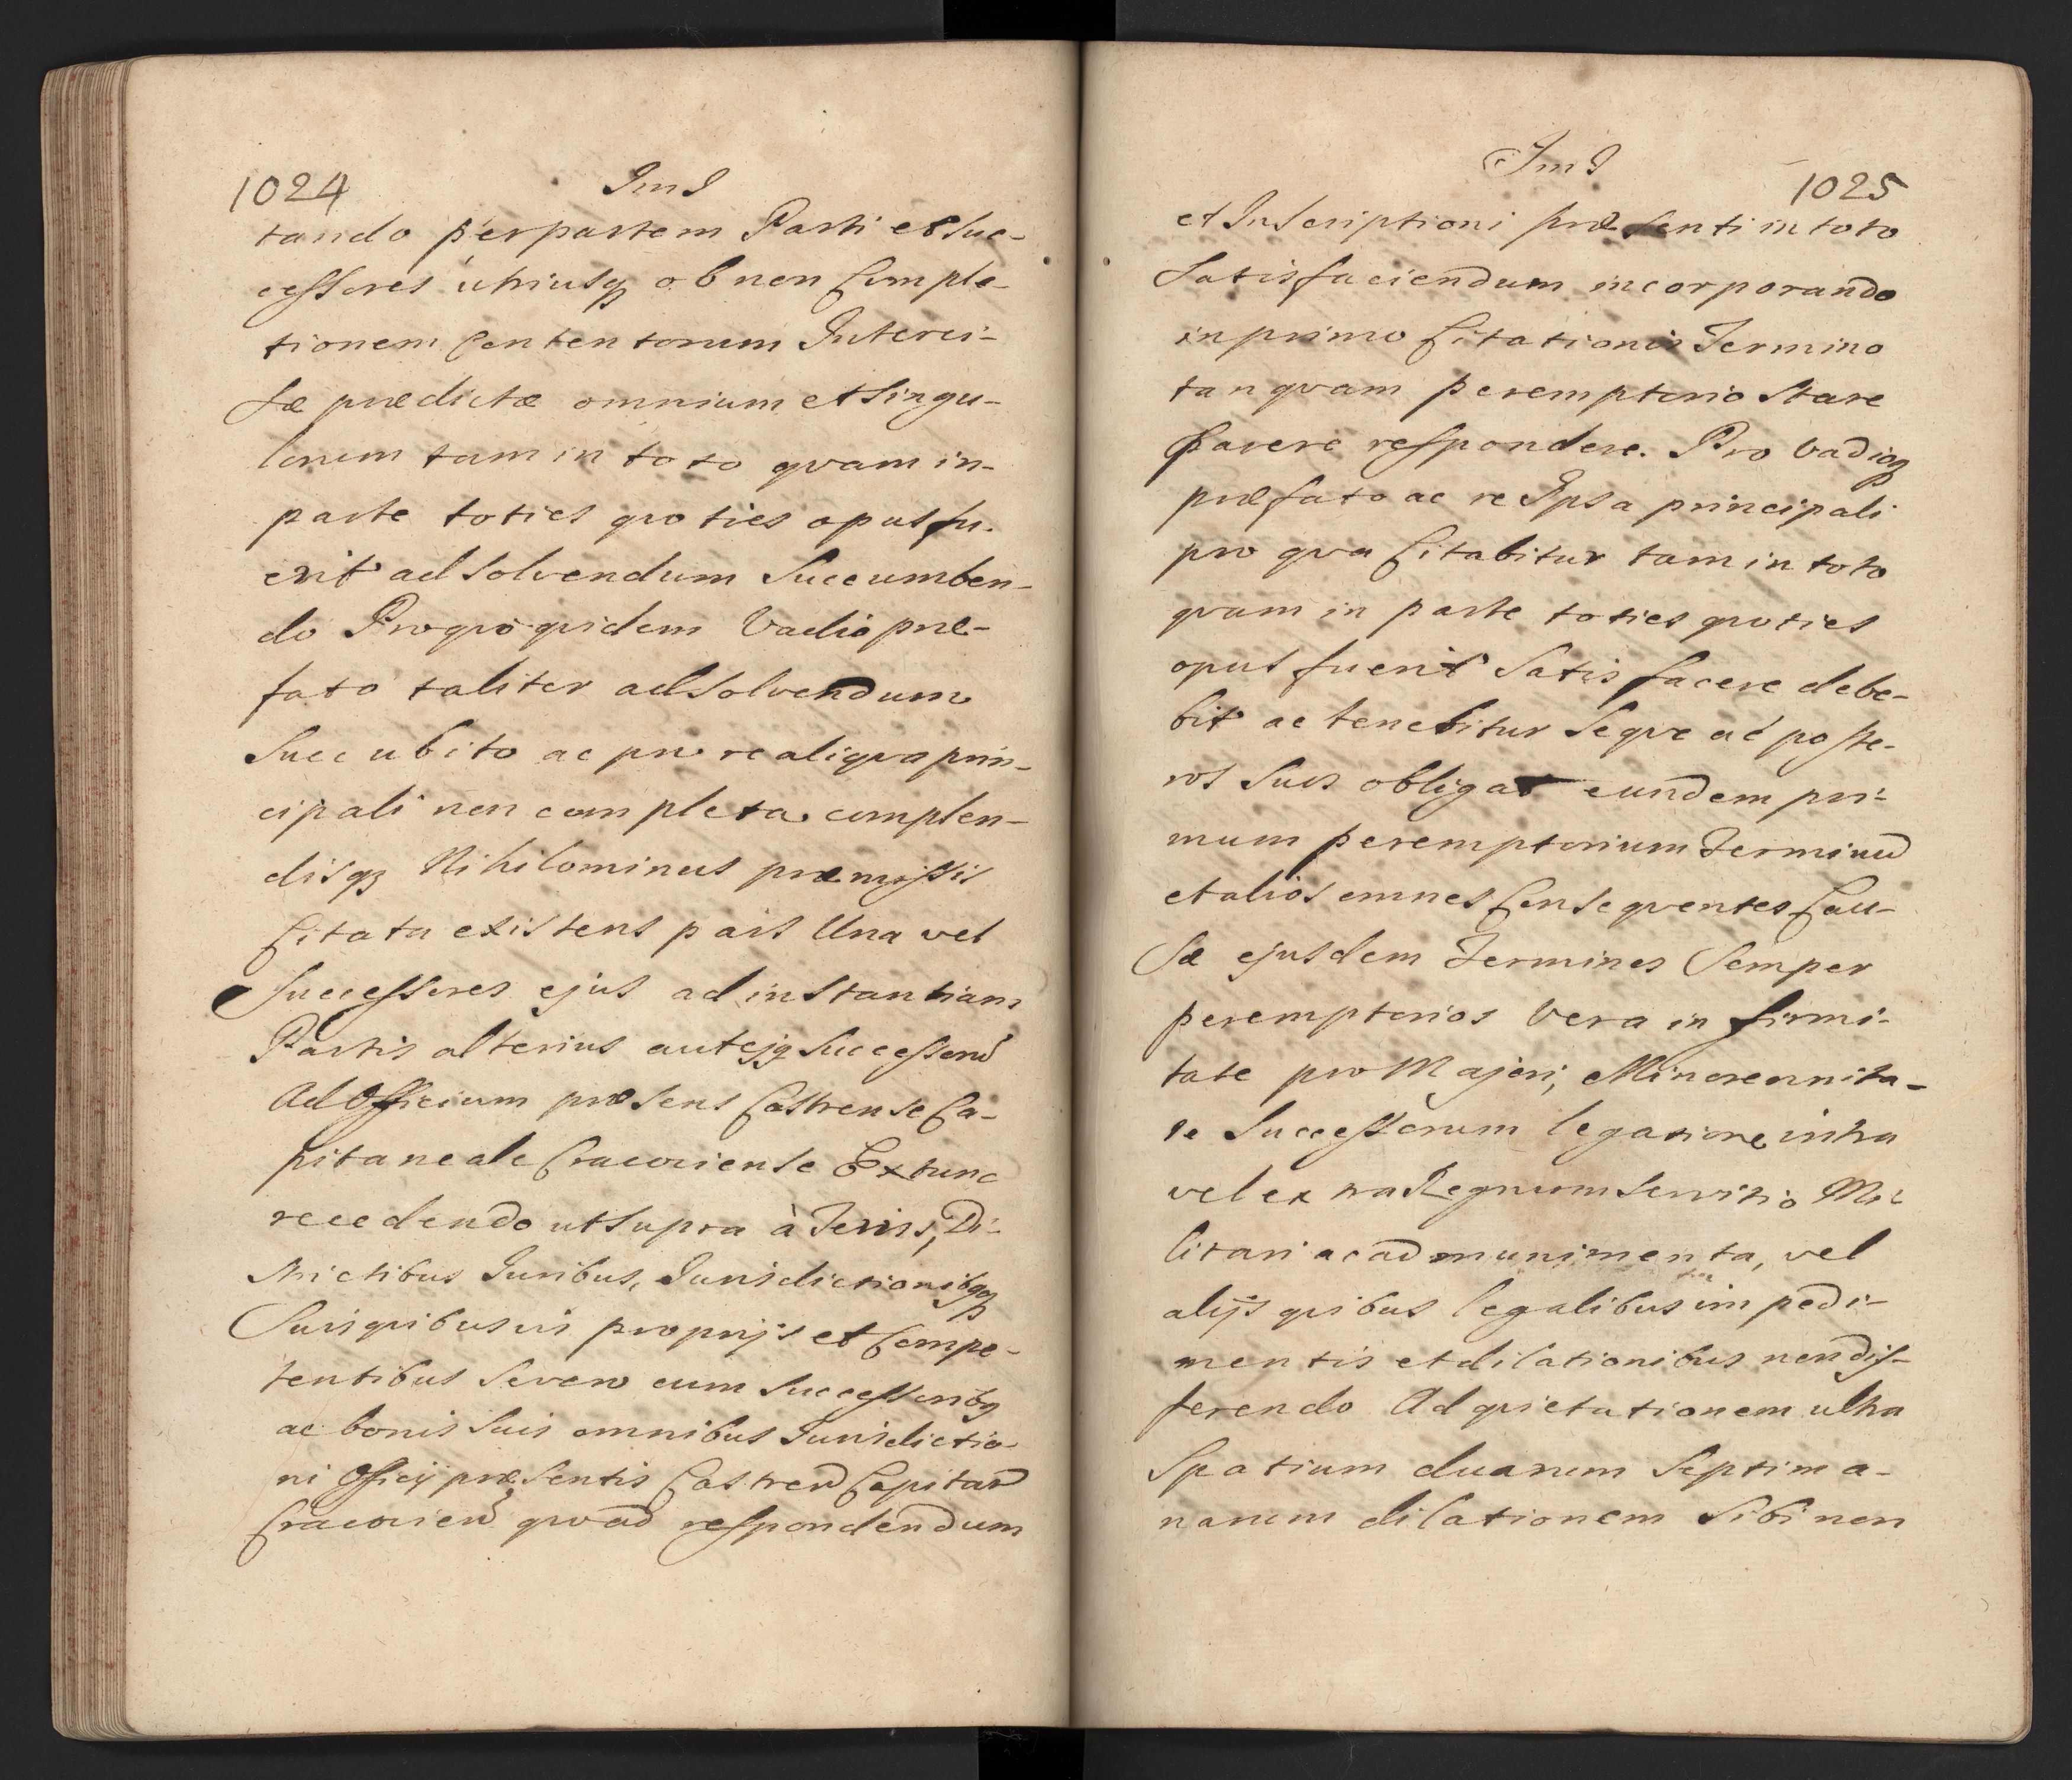 1024 Im I
tando per partem Parti et Suc-
cessores utriusq̃ ob non Comple-
tionem Contentorum Interci-
sæ prædictæ omnium et Singu-
lorum tam in toto qvam in-
parte toties qvoties opus fu-
erit ad Solvendum Succumben-
do Pro qvo qvidem Vadio præ-
fato taliter ad Solvendum
Succubito ac pro re aliqva prin-
cipali non completa complen-
disq̃ Nihilominus præmissis
Citata existens pars Una vel
Successores ejus ad instantiam
Partis alterius aut ejq̃ Successorũ
Ad Officium præsens Castrense Ca-
pitaneale Cracoviense Ex tunc
recedendo ut Supra à Terris, Di-
strictibus Juribus, Jurisdictionibqq̃
Suis qvibusvis proprijs et Compe-
tentibus Severo cum Successoribq̃
ac bonis Suis omnibus Jurisdictio-
ni Officij præsentis Castren̄ Capitan̄
Cracovien̄ qvoad respondendum
Im I 1025
et Inscriptioni præsenti in toto
Satisfaciendum incorporando
in primo Citationis Termino
tanqvam peremptorio Stare
parere respondere. Pro Vadioq̃
præfato ac re Ipsa principali
pro qva Citabitur tam in toto
qvam in parte toties qvoties
opus fuerit Satisfacere debe-
bit ac tenebitur Seqve ac poste-
ros Suos obligat eundem pri-
mum peremptorium Terminũ
et alios omnes Conseqventes Cau-
sæ ejusdem Terminos Semper
peremptorios Vera infirmi-
tate pro Majori, Minorennita-
te Successorum legatione intra
vel extra Regnum Servitio Mi-
litari ac ad munimenta, vel
alijs qvibus legalibus impedi-
mentis et dilationibus non dif-
ferendo Ad qvietationem ultra
Spatium duarum Septima-
narum dilationem Sibi non